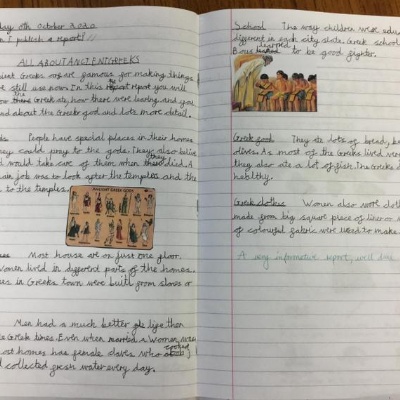 day 8th October 2020
I publish a report! //
ALL ABOUT ANCIENT GREEKS
ient Greeks are famous for making things
still use now. In this report you will
how the Greek ate, how there were living, and you
d about the Greeks gods and lots more detail.
ds People have special places in their homes
ey could pray to the gods. They also belive
would take care of them when they died. A
main job was to look after the temples and the
to the temples.
ANCIENT GREEK GODS
es Most house are on just one floor.
women lived in different parts of the homes.
es in Greeks town were built from stones or
Men had a much better life then
Greek times. Even when married a Women were
ost homes has female slaves who cooked
d collected fresh water every day.
School The way children were edu
different in each city state. Greek school
Boys learned to be good fighter.
Greek food They ate lots of bread, be
olives. As most of the Greeks lived very
they also ate a lot of fish. The Greeks d
healthy.
Greek clothes Women also work cloth
made from big square piece of linen or w
of colourful fabric were used to make
A very informative report, well done